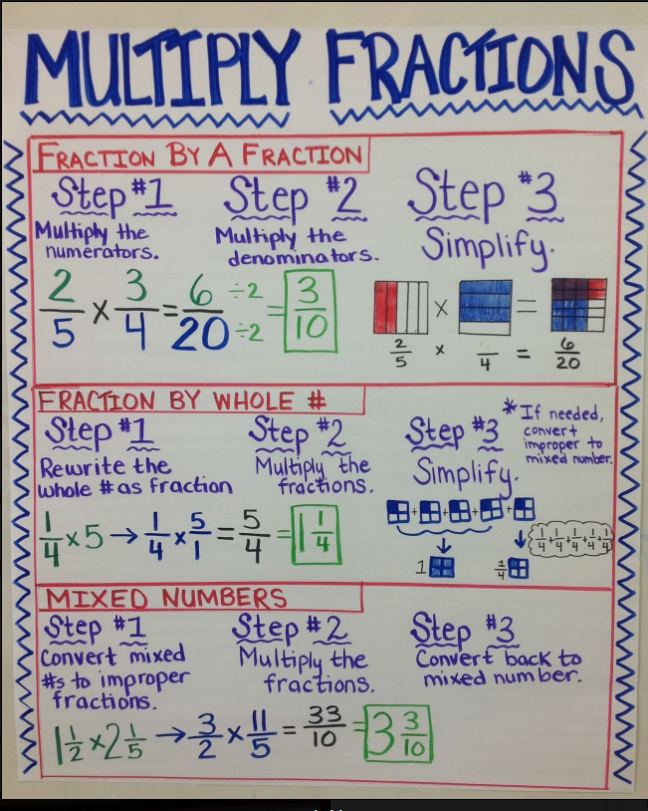 MULTIPLY FRACTIONS
FRACTION BY A FRACTION
Step #1
Multiply the
numerators.
Step #2
Multiply the
denominators.
Step #3
Simplify.
2/5 x 3/4 = 6/20 ÷2/÷2 = 3/10
x =
2/5 x /4 = 6/20
FRACTION BY WHOLE #
Step #1
Rewrite the
whole # as fraction
Step #2
Multiply the
fractions.
Step #3
Simplify.
* If needed,
convert
improper to
mixed number.
1/4 x 5 → 1/4 x 5/1 = 5/4 = 1 1/4
+ + + +
1/4 + 1/4 + 1/4 + 1/4 + 1/4
1
1/4
MIXED NUMBERS
Step #1
Convert mixed
#s to improper
fractions.
Step #2
Multiply the
fractions.
Step #3
Convert back to
mixed number.
1 1/2 x 2 1/5 → 3/2 x 11/5 = 33/10 = 3 3/10